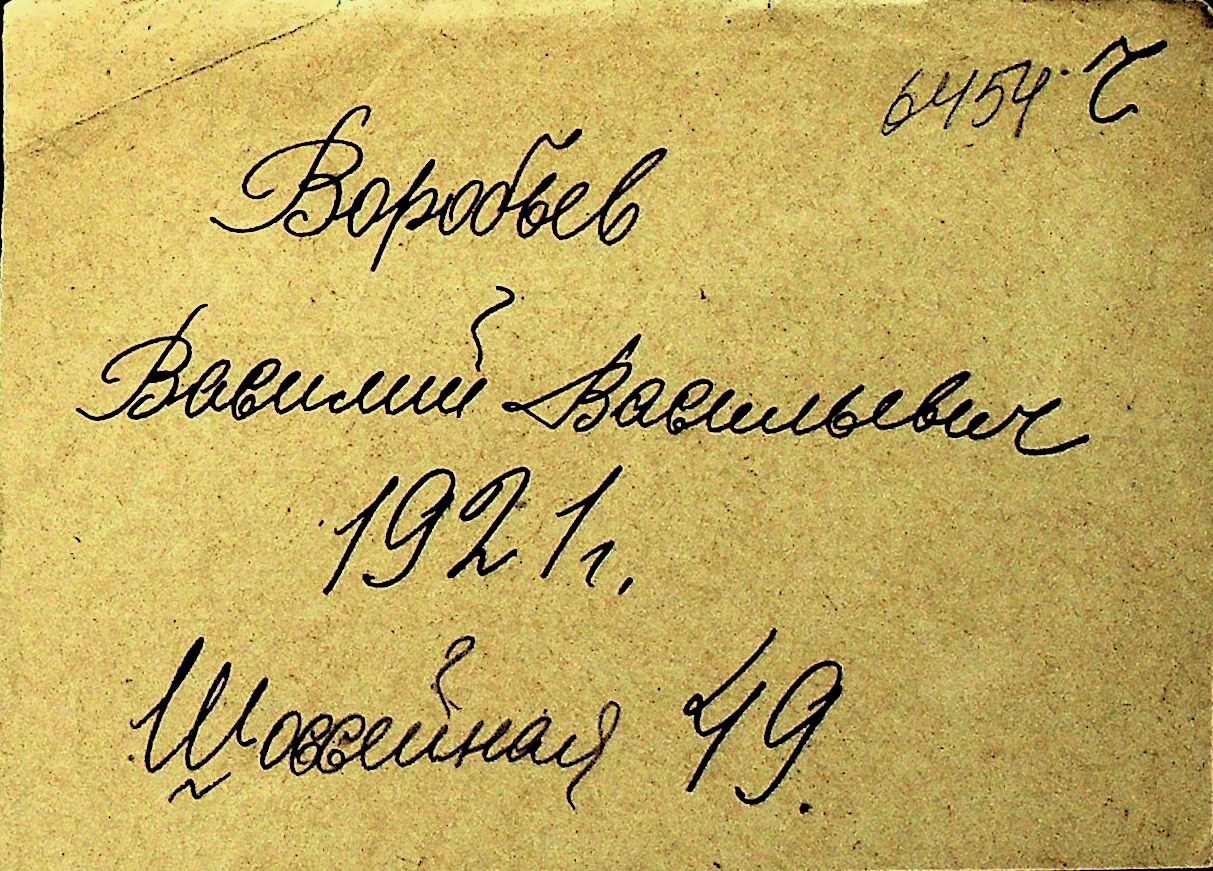 6454. Ч
Воробьев
Василий Васильевич
1921г.
Шоссейная 49.